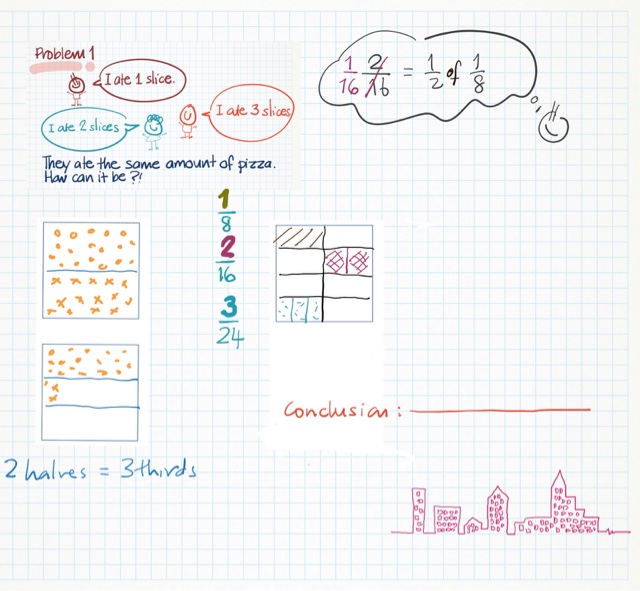 Problem 1
I ate 1 slice.
I ate 2 slices
I ate 3 slices
They ate the same amount of pizza.
How can it be ?!
1/16 2/16 = 1/2 of 1/8
1/8
2/16
3/24
Conclusion :
2 halves = 3 thirds